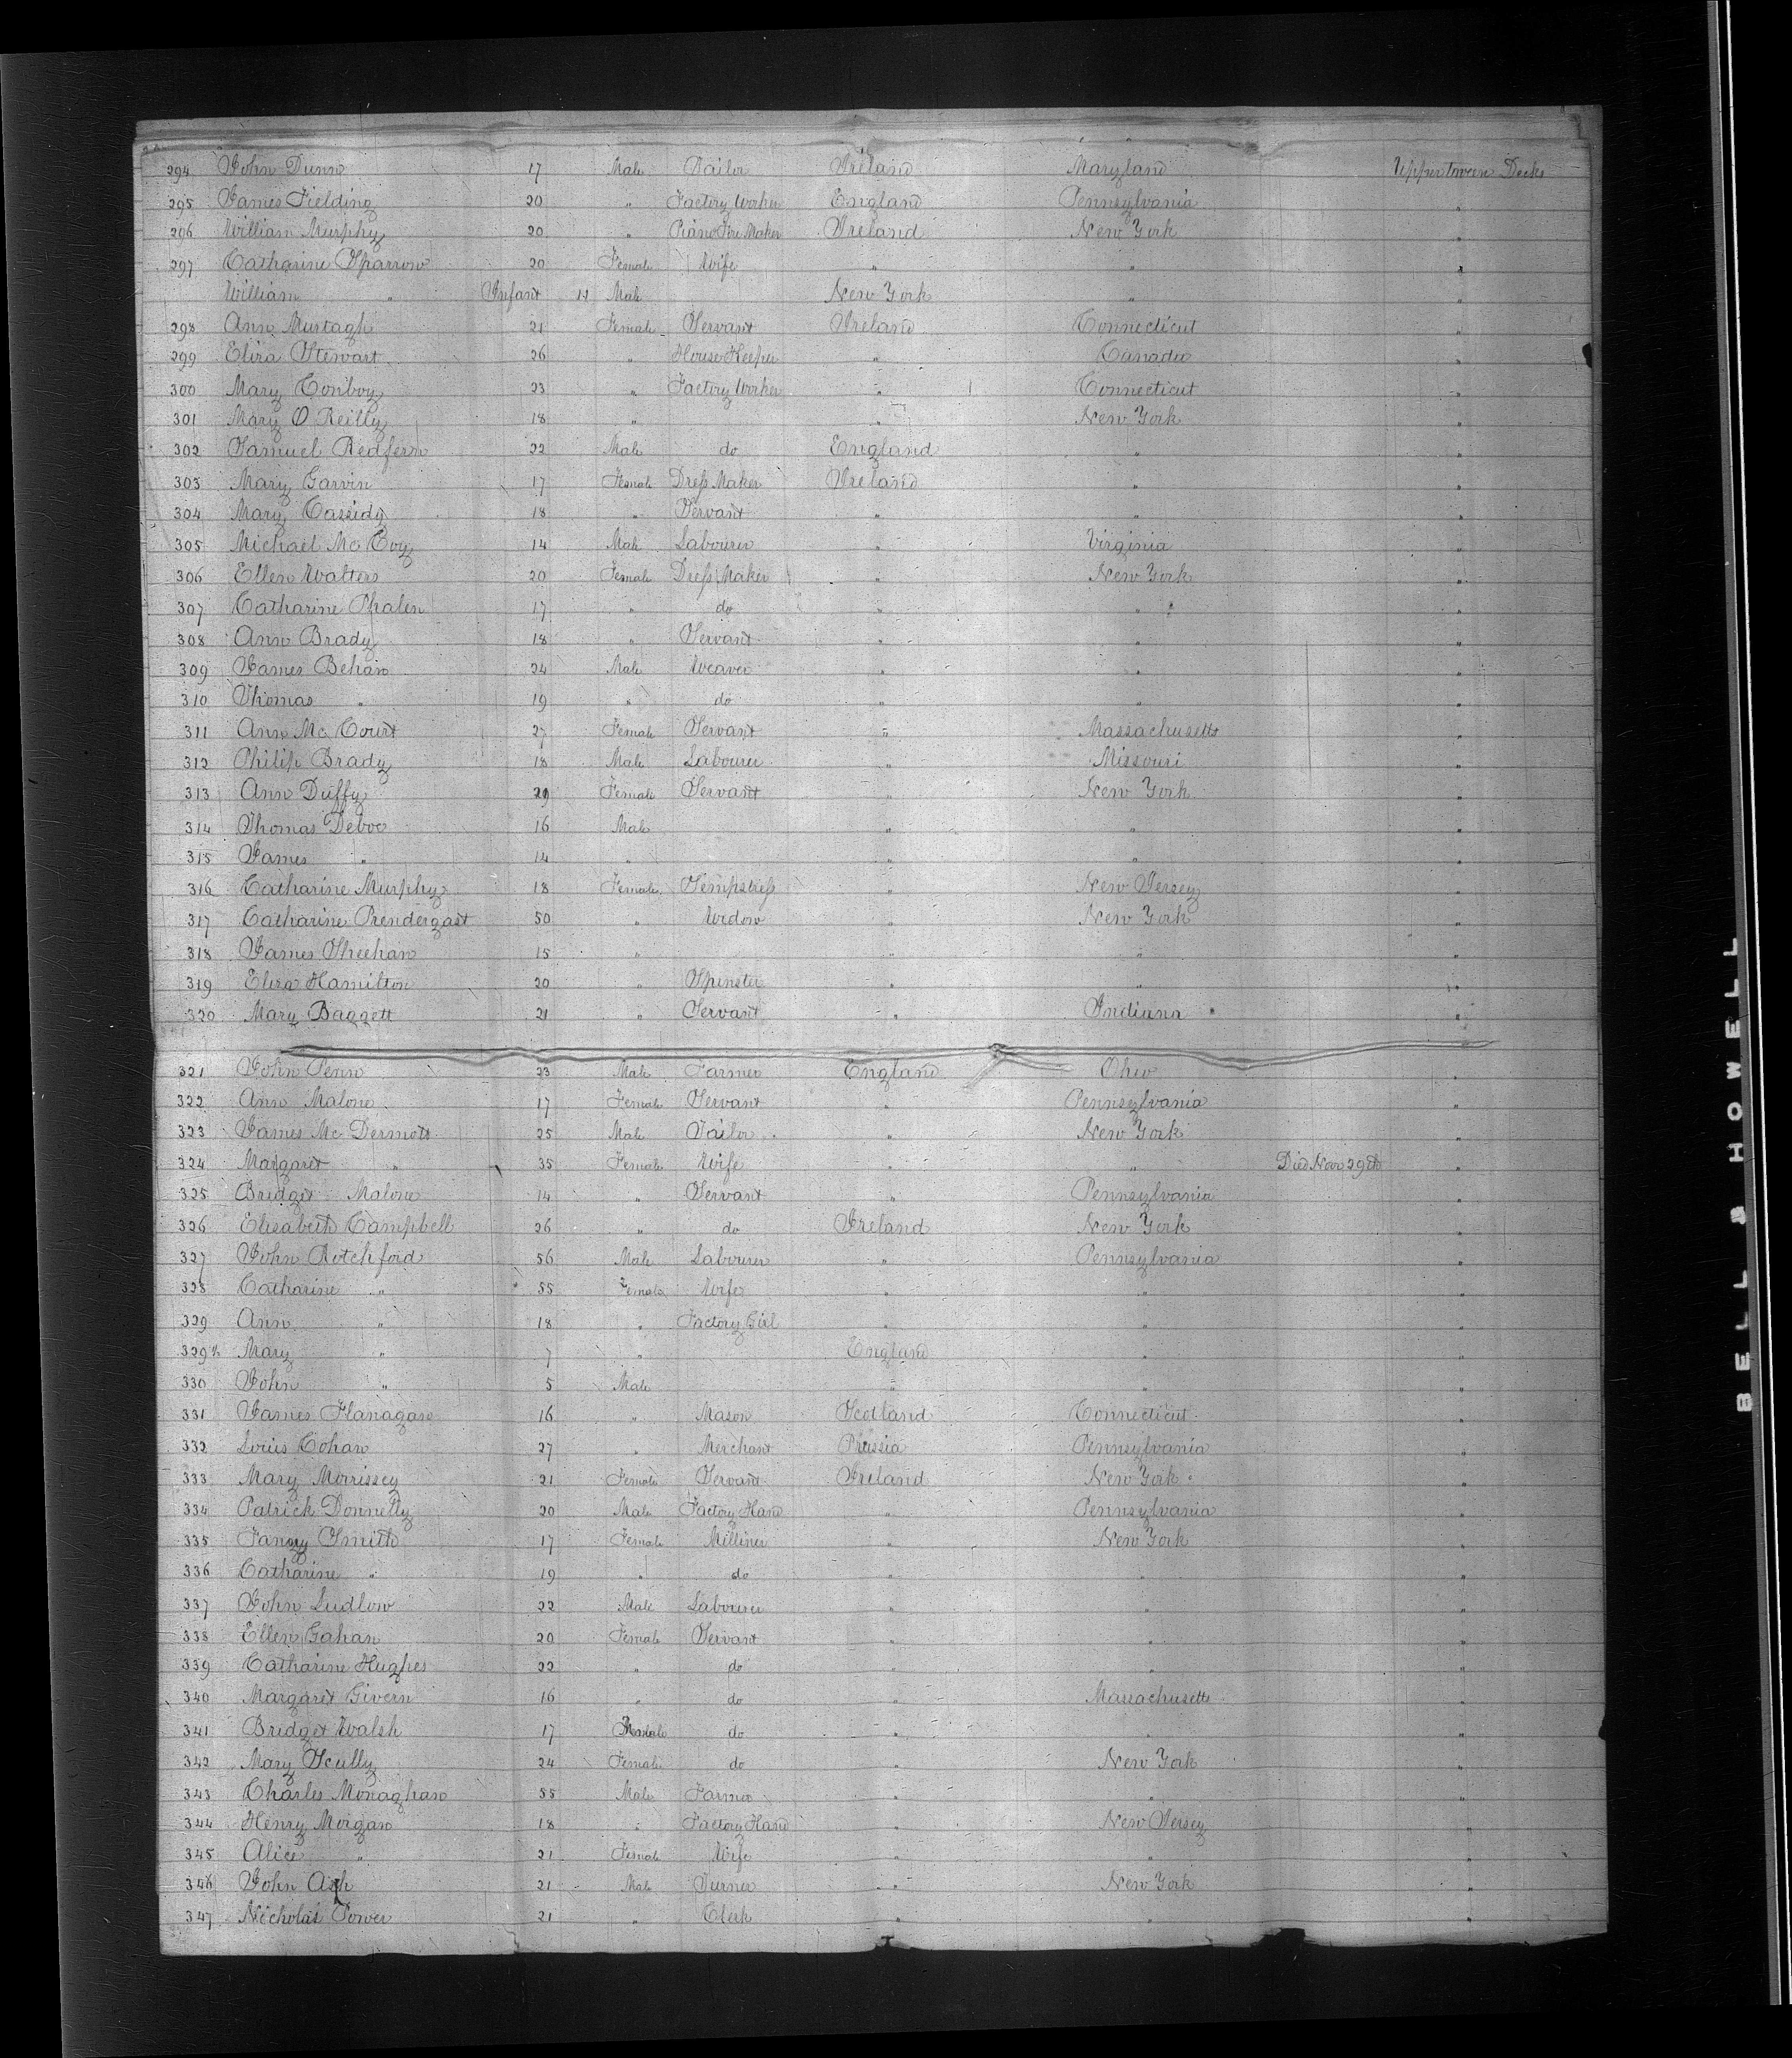 294 John Dunn 17 Male Tailor Ireland Maryland Uppertween Decks
295 James Fielding 20 " Factory Worker England Pennsylvania "
296 William Murphy 20 " Piano Fre Maker Ireland New York "
297 Catharine Sparrow 20 Female Wife " " "
William " Infant Male New York " "
298 Ann Murtagh 21 Female Servant Ireland Connecticut "
299 Eliza Stewart 26 " House Keeper " Canada "
300 Mary Conboy 23 " Factory Worker " Connecticut "
301 Mary O Reilly 18 " " New York "
302 Samuel Redfern 22 Male do England " "
303 Mary Garvin 17 Female Dress Maker Ireland " "
304 Mary Cassidy 18 " Servant " " "
305 Michael Mc Evoy 14 Male Labourer " Virginia "
306 Ellen Walters 20 Female Dress Maker " New York "
307 Catharine Phalen 17 " do " " "
308 Ann Brady 18 " Servant " " "
309 James Behan 24 Male Weaver " " "
310 Thomas " 19 " do " " "
311 Ann Mc Court 27 Female Servant " Massachusetts "
312 Philip Brady 18 Male Labourer " Missouri "
313 Ann Duffy 29 Female Servant " New York "
314 Thomas Deboe 16 Male " " "
315 James " 14 " " " "
316 Catharine Murphy 18 Female Sempstress " New Jersey "
317 Catharine Prendergast 50 " Widow " New York "
318 James Sheehan 15 " " " "
319 Eliza Hamilton 20 " Spinster " " "
320 Mary Baggett 21 " Servant " Indiana "
321 John Penn 23 Male Farmer England Ohio "
322 Ann Malone 17 Female Servant " Pennsylvania "
323 James Mc Dermott 25 Male Tailor " New York "
324 Margaret " 35 Female Wife " " Died Nov 29th "
325 Bridget Malone 14 " Servant " Pennsylvania "
326 Elisabeth Campbell 26 " do Ireland New York "
327 John Rotchford 56 Male Labourer " Pennsylvania "
328 Catharine " 55 Female Wife " " "
329 Ann " 18 " Factory Girl " " "
329½ Mary " 7 " England " "
330 John " 5 Male " " "
331 James Flanagan 16 " Mason Scotland Connecticut "
332 Louis Cohan 27 " Merchant Prussia Pennsylvania "
333 Mary Morrissey 21 Female Servant Ireland New York "
334 Patrick Donnelly 20 Male Factory Hand " Pennsylvania "
335 Fanny Smith 17 Female Milliner " New York "
336 Catharine " 19 " do " " "
337 John Ludlow 22 Male Labourer " " "
338 Ellen Gahan 20 Female Servant " " "
339 Catharine Hughes 22 " do " " "
340 Margaret Givern 16 " do " Massachusetts "
341 Bridget Walsh 17 Female do " " "
342 Mary Scully 24 Female do " New York "
343 Charles Monaghan 55 Male Farmer " " "
344 Henry Morgan 18 " Factory Hand " New Jersey "
345 Alice " 21 Female Wife " " "
346 John Ash 21 Male Turner " New York "
347 Nicholas Power 21 " Clerk " " "
BELL & HOWELL